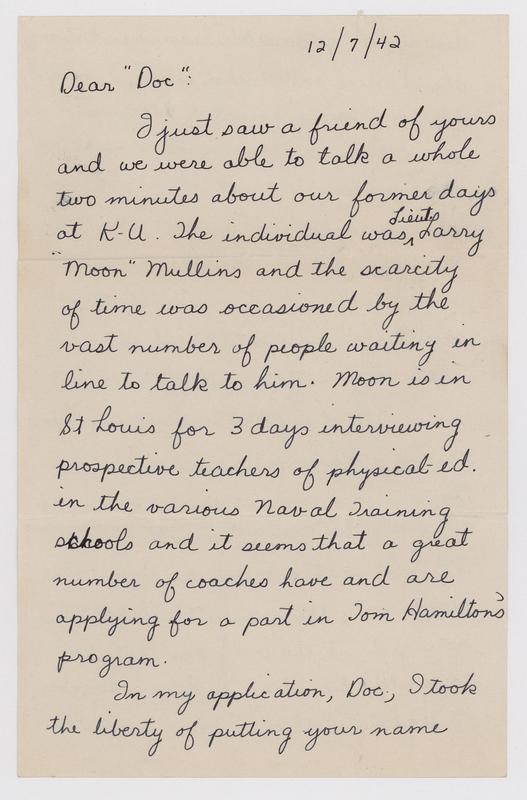 12/7/42
Dear "Doc":
I just saw a friend of yours
and we were able to talk a whole
two minutes about our former days
at K-U. The individual was Lieut. Larry
"Moon" Mullins and the scarcity
of time was occasioned by the
vast number of people waiting in
line to talk to him. Moon is in
St Louis for 3 days interviewing
prospective teachers of physical-ed.
in the various Naval Training
schools and it seems that a great
number of coaches have and are
applying for a part in Tom Hamilton's
program.
In my application, Doc, I took
the liberty of putting your name